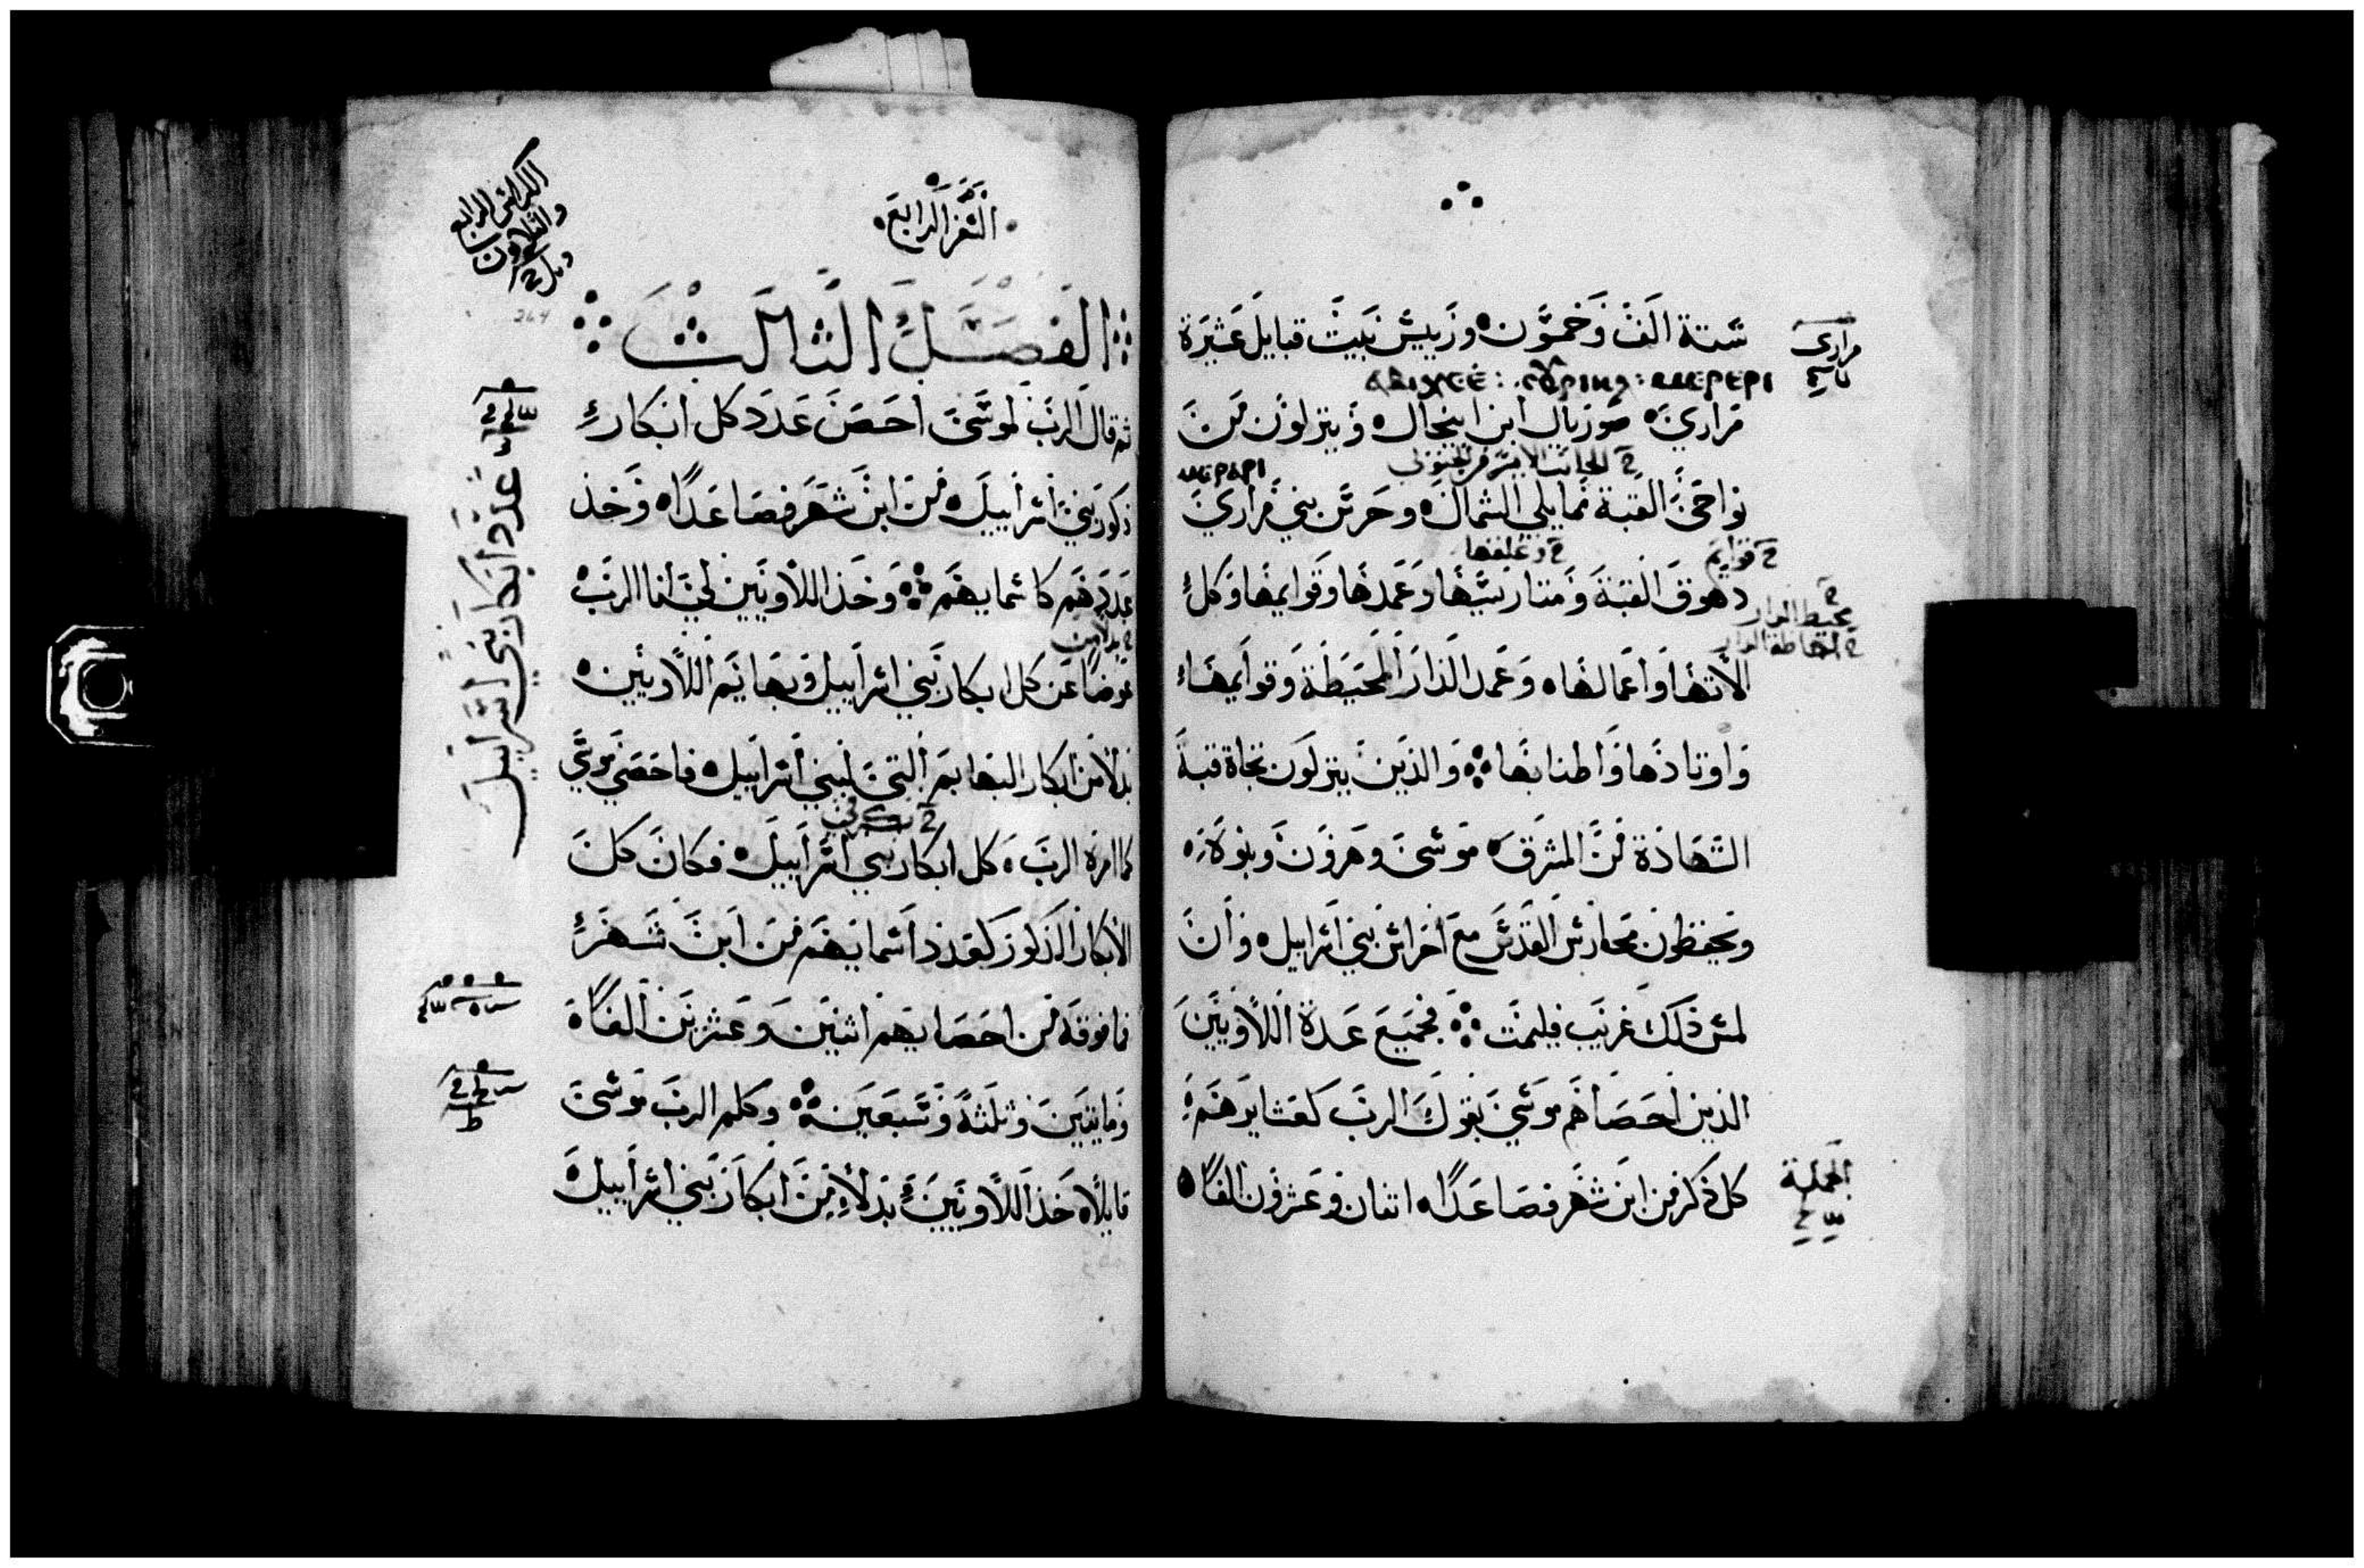 ستة الف وخمسون وريس بيت قبايل عشيرة
مراري
ⲁⲃⲓⲭⲉⲉ : ⲥⲟⲩⲣⲓⲏⲗ : ⲙⲉⲣⲉⲣⲓ
مراري صوريال ابن ابيخال وينزلون من
ⲙⲉⲣⲁⲣⲓ
نواحي القبة مما يلي الشمال وحرس بني مراري
قوايم
دهوق القبة ومتارسها وعمدها وقوايمها وكل
الاتها واعمالها وعمد الدار المحيطة وقوايمها
واوتادها واطنابها والذين ينزلون تجاة قبة
الشهادة من المشرق موسى وهرون وبنوة
ويحفظون محارس القدس مع احراس بني اسراييل وان
لمس ذلك غريب فليمت فجميع عدة اللاويين
الذين احصاهم موسى بقول الرب كعشايرهم
كل ذكر من ابن شهر فصاعدا اثنان وعشرون الفا
الجملة
السفر الرابع
الكراس الرابع
والثلاثون
264
الفصل الثالث
ثم قال الرب لموسى احص عدد كل ابكار
ذكور بني اسراييل من ابن شهر فصاعدا وخذ
عدد ابكار بني اسراييل
عددهم كاسمايهم وخذ اللاويين لي انا الرب
بدلا من
عوضا عن كل ابكار بني اسراييل وبهايم اللاويين
بدلا من ابكار البهايم التي لبني اسراييل فاحصى موسى
كما امرة الرب كل ابكار بني اسراييل فكان كل
الابكار الذكور كعدد اسمايهم من ابن شهر
فما فوقه من احصايهم اثنين وعشرين الفا
ومايتين وثلثة وسبعين وكلم الرب موسى
قايلا خذ اللاويين بدلا من ابكار بني اسراييل